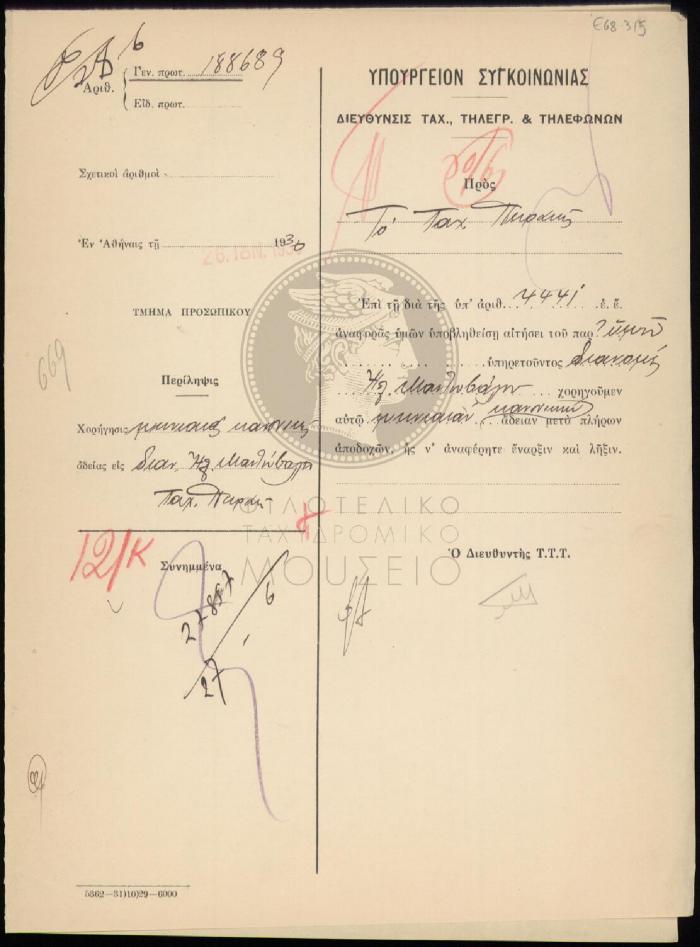 Ε68-3/5
Ἀριθ.
Γεν. πρωτ. 188689
Εἰδ. πρωτ.
Σχετικοὶ ἀριθμοὶ
Ἐν Ἀθήναις τῇ 1930
26. ΙΟΥΝ. 1930
ΤΜΗΜΑ ΠΡΟΣΩΠΙΚΟΥ
669
Περίληψις
Χορήγησις μηνιαίας κανονικῆς
ἀδείας εἰς διαν. Ἠλ.
Ταχ. Πειραιῶς
12/Κ
Συνημμένα
27
6
5862—31)10)29—6000
ΥΠΟΥΡΓΕΙΟΝ ΣΥΓΚΟΙΝΩΝΙΑΣ
ΔΙΕΥΘΥΝΣΙΣ ΤΑΧ., ΤΗΛΕΓΡ. & ΤΗΛΕΦΩΝΩΝ
Πρὸς
Τὸ Ταχ. Πειραιῶς
Ἐπὶ τῇ διὰ τῆς ὑπ' ἀριθ. 4441 ἐ. ἔ.
ἀναφορᾶς ὑμῶν ὑποβληθείσῃ αἰτήσει τοῦ παρ' ὑμῖν
ὑπηρετοῦντος διανομέως
Ἠλ. χορηγοῦμεν
αὐτῷ μηνιαίαν κανονικὴν ἄδειαν μετὰ πλήρων
ἀποδοχῶν, ἧς ν' ἀναφέρητε ἔναρξιν καὶ λῆξιν.
Ὁ Διευθυντὴς Τ.Τ.Τ.
ΦΙΛΟΤΕΛΙΚΟ
ΤΑΧΥΔΡΟΜΙΚΟ
ΜΟΥΣΕΙΟ